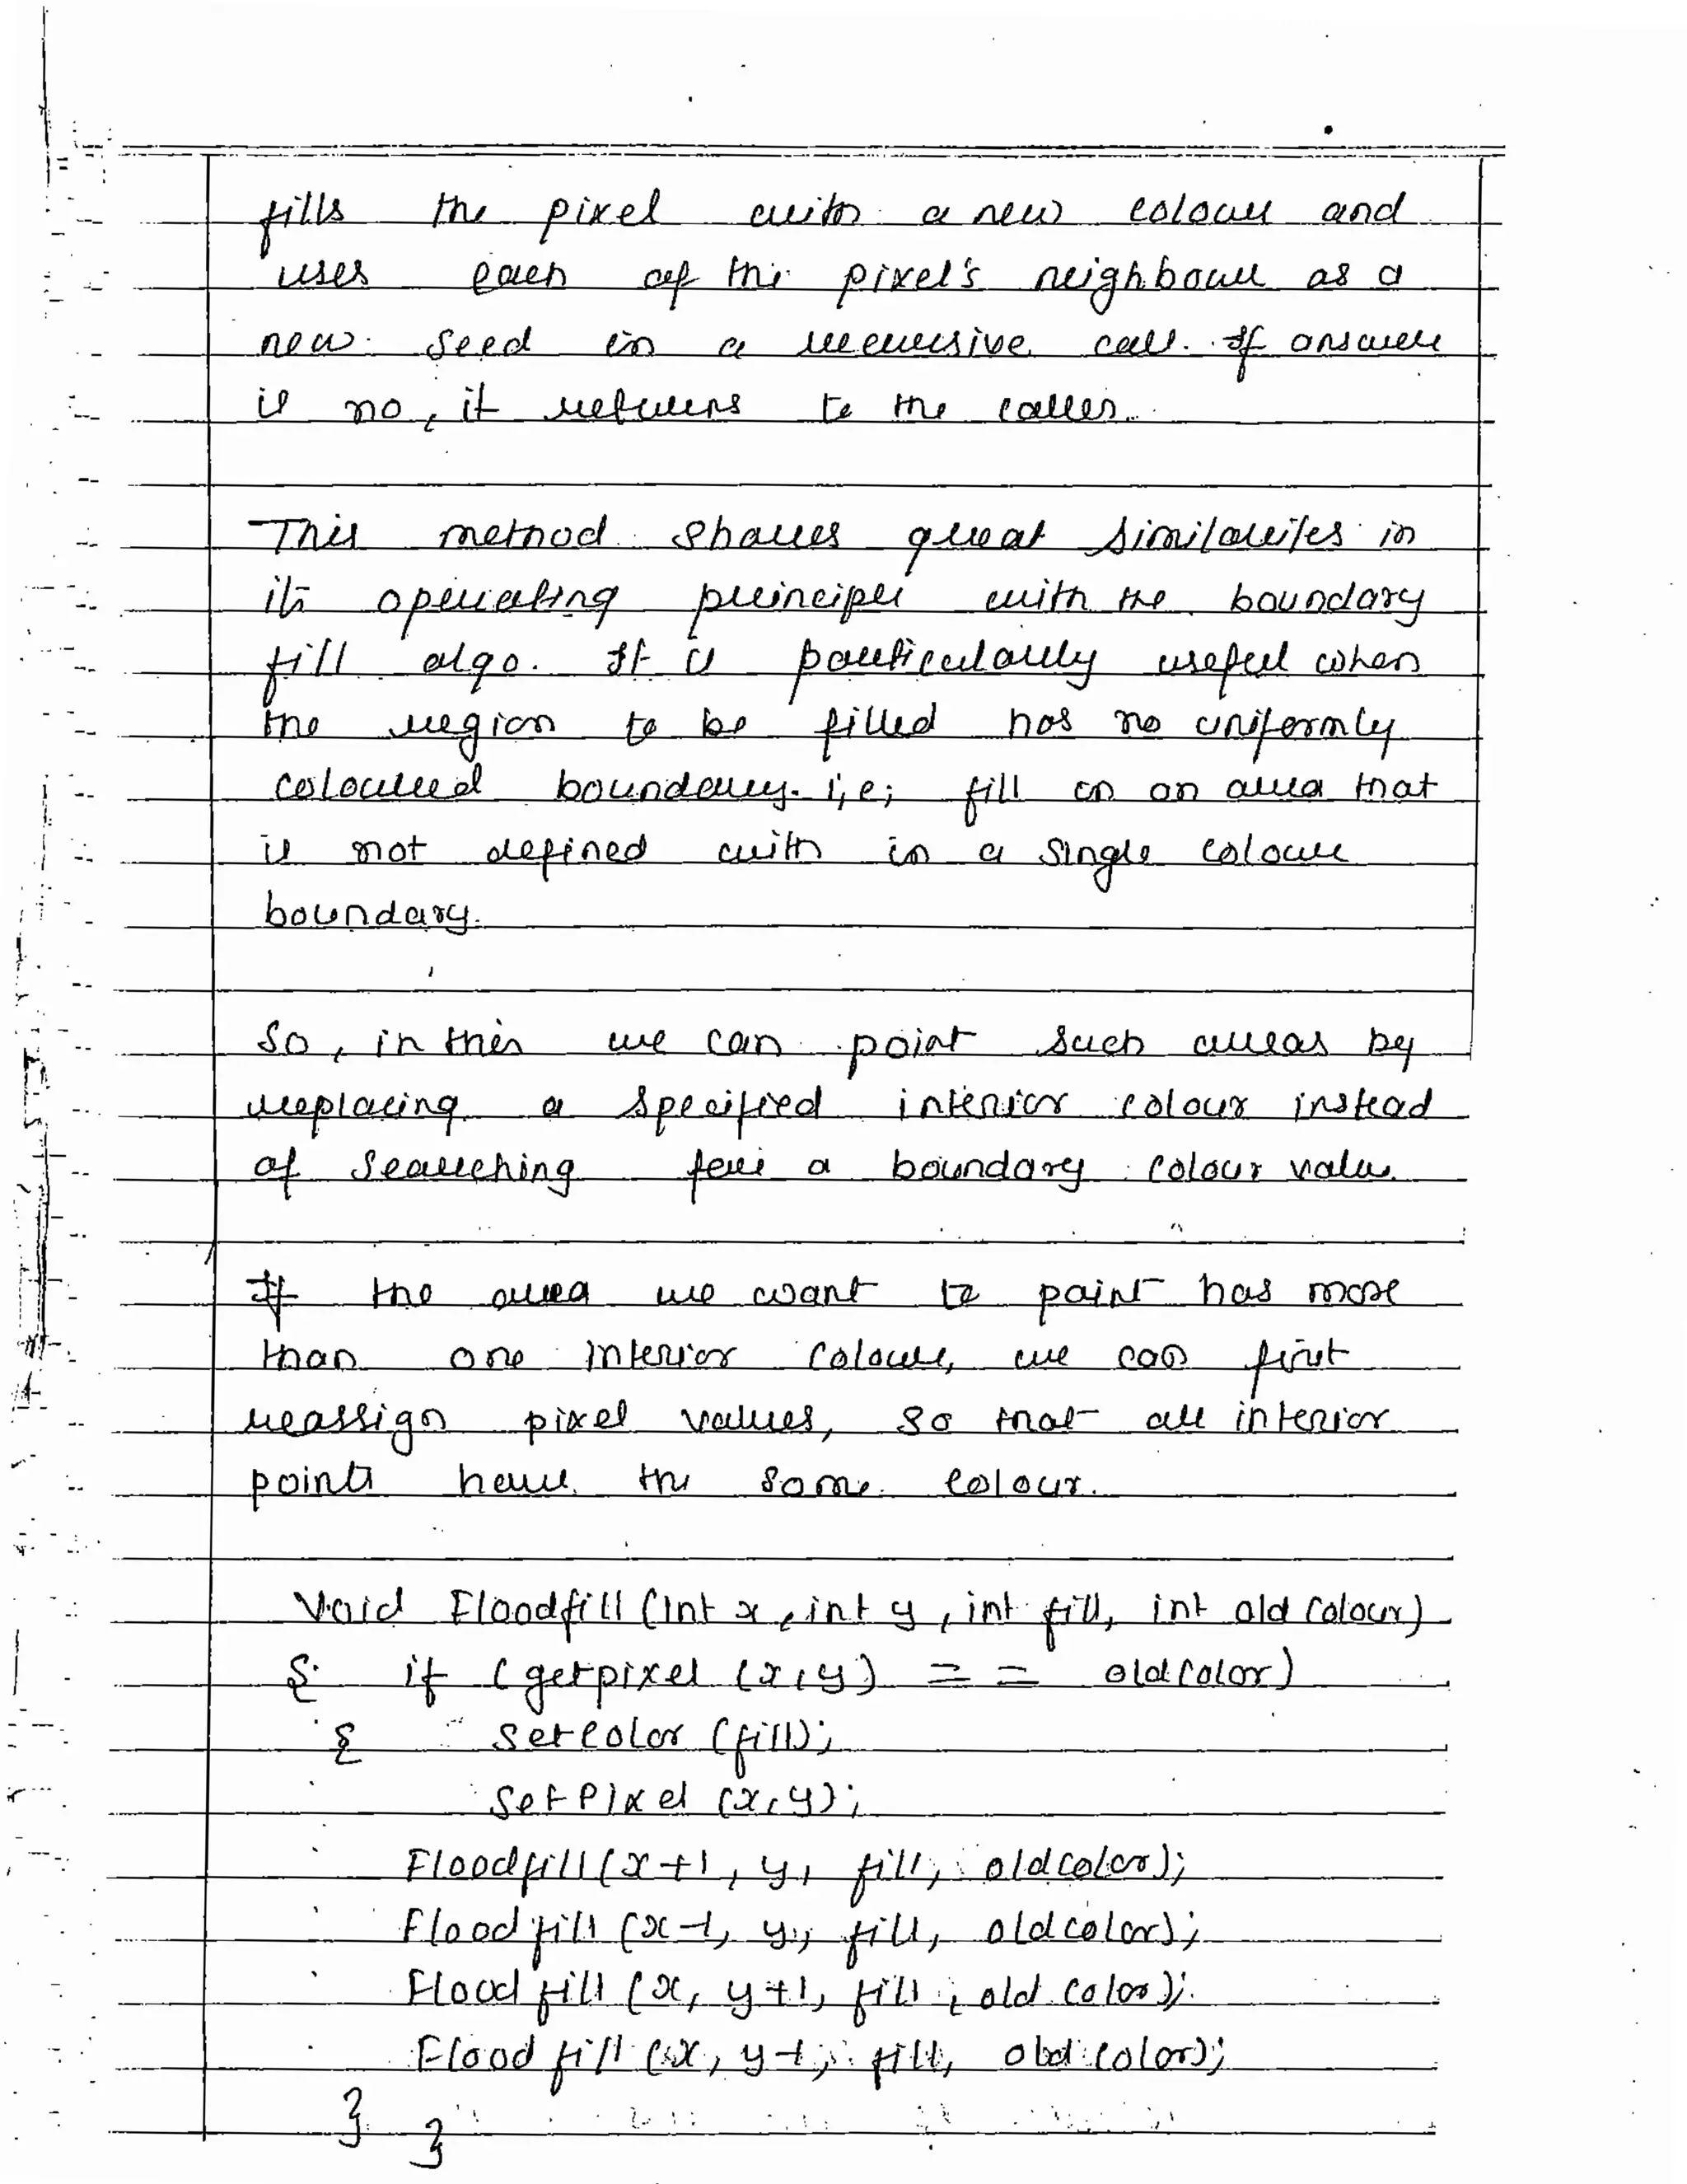 fills the pixel with a new colour and
uses each of the pixel's neighbour as a
new seed in a recursive call. If answer
is no, it returns to the caller.
This method shares great similarites in
its operating principle with the boundary
fill algo. It is particularly useful when
the region to be filled has no uniformly
coloured boundary. i,e; fill in an area that
is not defined with in a single colour
boundary.
So, in this we can point such areas by
replacing a specified interior colour instead
of searching for a boundary colour value.
If the area we want to paint has more
than one interior colour, we can first
reassign pixel values, so that all interior
points have the same colour.
Void Floodfill (int x, int y, int fill, int old colour)
{ if (getpixel (x,y) = = oldcolor)
{ setcolor (fill);
setPixel (x,y);
Floodfill (x+1, y, fill, oldcolor);
Floodfill (x-1, y, fill, oldcolor);
Flood fill (x, y+1, fill, old color);
Flood fill (x, y-1, fill, old color);
} }